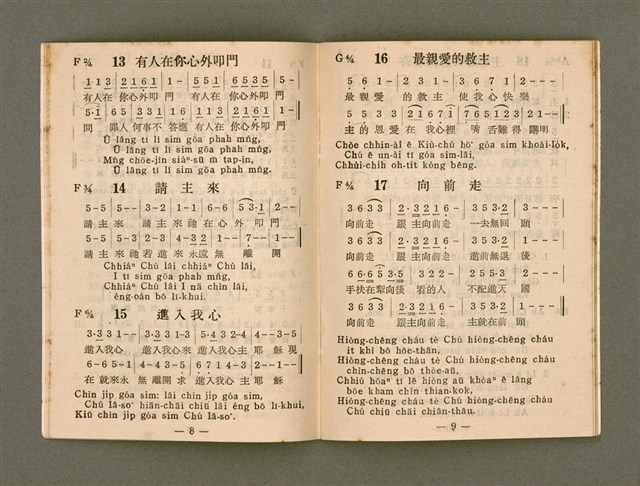 F 2/4 13 有人在你心外叩門
113 2161 1- 551 6535 5-
有人在 你心外叩 門 有人在 你心外叩 門
5·1 65 331 116 1- 113 2161 1-
問 罪人 何事不 答應 有人在 你心外叩 門
Ū lâng tī lí sim gōa phah mn̂g,
Ū lâng tī lí sim gōa phah mn̂g,
Mn̄g chōe-jîn siáⁿ-sū m̄ tap-ìn,
Ū lâng tī lí sim gōa phah mn̂g.
F 3/4 14 請主來
5-5 5-- 3-2 1-1 6-6 53·1 2--
請 主 來 請 主 來 祂 在 心 外 叩 門
5-5 5-3 2-3 4-32 1-- 7-- 1--
請 主 來 祂 若 進 來 永遠 無 離 開
Chhiáⁿ Chú lâi chhiáⁿ Chú lâi,
I tī sim gōa phah mn̂g,
Chhiáⁿ Chú lâi I nā chìn lâi,
éng-oán bô lī-khui.
F 6/4 15 進入我心
3·331-- 3·331-3 5·432-4 4--3-5
進入我心 進入我心來 進入我心 主 耶 穌 現
6-65-1 4-43-5 6714-3 2--1--
在 就來永 無 離開求 進入我心 主 耶 穌
Chìn ji̍p góa sim: lâi chìn ji̍p góa sim,
Chú Iâ-so͘ hiān-chāi chiū lâi éng bô lī-khui,
Kiû chìn ji̍p góa sim Chú Iâ-so͘.
— 8 —
G 4/4 16 最親愛的救主
561- 231- 3671 2---
最 親 愛 的 教 主 使 我 心 快 樂
5533 2167 1765123 2-1-
主 的 恩 愛 在 我心 裡 嘴 舌 難得 講明
Chòe chhin-ài ê Kiù-chú hō͘ góa sim khoài-lo̍k,
Chú ê un-ài tī góa sim-lāi,
Chhùi-chi̍h oh-tit kóng bêng.
F 4/4 17 向前走
3633 2·3216- 353·2 3---
向前走 跟主向前走 一去無回 頭
3633 2·3216- 353·2 1---
向前走 跟主向前走 進前無退 後
66·653·5 322- 255·3 2---
手扶在犁向後 看的人 不配進天 國
3633 2·3216- 353·2 1---
向前走 跟主向前走 主就在前 頭
Hiòng-chêng cháu tè Chú hiòng-chêng cháu
it khì bô hôe-thâu,
Hiòng-chêng cháu tè Chú hiòng-chêng cháu
chìn-chêng bô thòe-āu,
Chhiú hōaⁿ tī lê hiòng āu khòaⁿ ê lâng
bōe kham chìn thian-kok,
Hiòng-chêng cháu tè Chú hiòng-chêng cháu
Chú chiū chāi chiân-thâu.
— 9 —